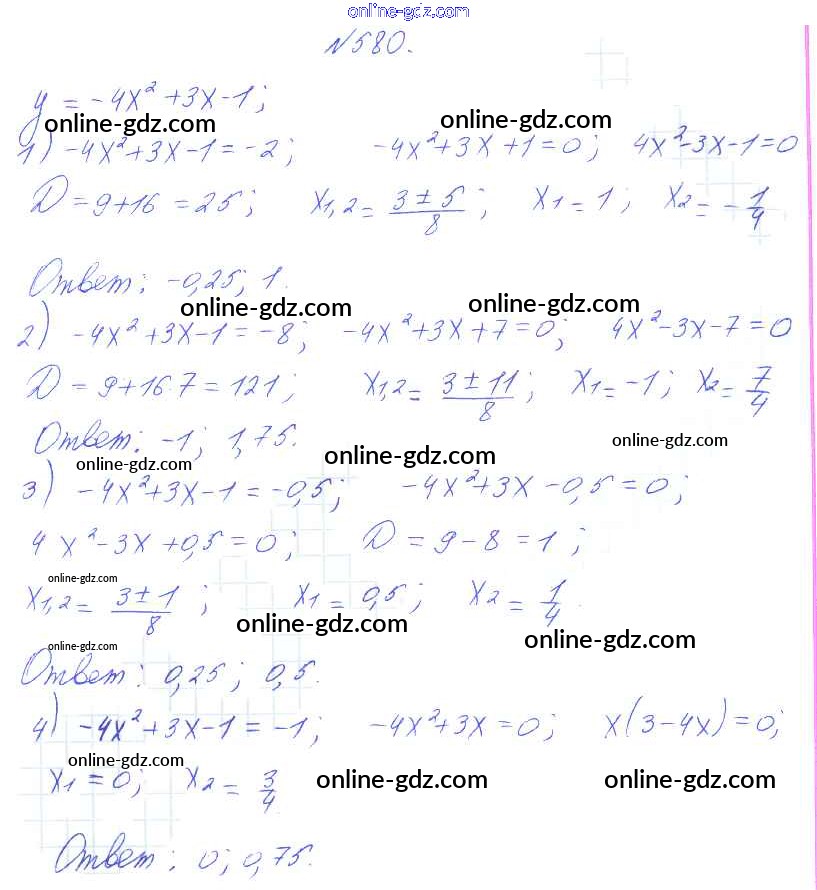 online-gdz.com
N580.
y = -4x² + 3x - 1;
online-gdz.com online-gdz.com
1) -4x² + 3x - 1 = -2; -4x² + 3x + 1 = 0; 4x² - 3x - 1 = 0
D = 9 + 16 = 25; x1,2 = (3 ± 5)/8; x1 = 1; x2 = -1/4
Ответ: -0,25; 1.
online-gdz.com online-gdz.com
2) -4x² + 3x - 1 = -8; -4x² + 3x + 7 = 0; 4x² - 3x - 7 = 0
D = 9 + 16·7 = 121; x1,2 = (3 ± 11)/8; x1 = -1; x2 = 7/4
Ответ: -1; 1,75.
online-gdz.com online-gdz.com online-gdz.com
3) -4x² + 3x - 1 = -0,5; -4x² + 3x - 0,5 = 0;
4x² - 3x + 0,5 = 0; D = 9 - 8 = 1;
online-gdz.com
x1,2 = (3 ± 1)/8; x1 = 0,5; x2 = 1/4.
online-gdz.com online-gdz.com
online-gdz.com
Ответ: 0,25; 0,5.
4) -4x² + 3x - 1 = -1; -4x² + 3x = 0; x(3 - 4x) = 0;
online-gdz.com
x1 = 0; x2 = 3/4.
online-gdz.com online-gdz.com
Ответ: 0; 0,75.